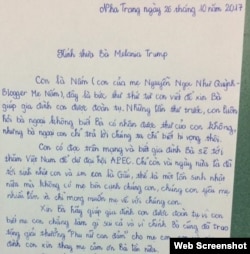 Nha Trang ngày 26 tháng 10 năm 2017
Kính thưa Bà Melania Trump
Con là Nấm (con của mẹ Nguyễn Ngọc Như Quỳnh-
Blogger Mẹ Nấm), đây là bức thư thứ tư con viết để xin Bà
giúp gia đình con được đoàn tụ. Những lần thư trước, con luôn
hỏi bà ngoại không biết Bà có nhận được thư của con không,
nhưng bà ngoại con chỉ trả lời chúng ta chỉ biết hi vọng thôi.
Con có đọc trên mạng và biết gia đình Bà sẽ tới
thăm Việt Nam để dự đại hội APEC. Chỉ còn vài ngày nữa là đã
tới sinh nhật con và em con là Gấu, thế là một lần sinh nhật
nữa mà không có mẹ bên cạnh chúng con, chúng con yêu mẹ
nhiều lắm và chỉ mong muốn mẹ về với chúng con.
Xin Bà hãy giúp gia đình con được đoàn tụ vì con
biết mẹ con chẳng làm gì sai cả vì chính Bà cũng đã trao
tặng giải thưởng "Phụ nữ can đảm" cho mẹ con
đình con xin thay mẹ cảm ơn Bà lần nữa.
Web Screenshot